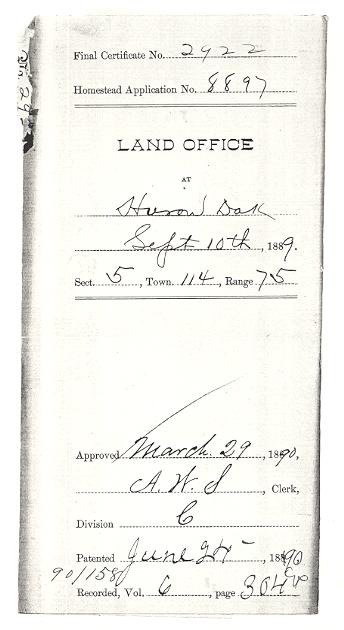 Final Certificate No. 2922
Homestead Application No. 8897
LAND OFFICE
AT
Huron Dak
Sept 10th, 1889.
Sect. 5, Town. 114, Range 75
Approved March 29, 1890,
A. W. S, Clerk,
Division C
Patented June 24, 1890
90/158
Recorded, Vol. 6, page 304